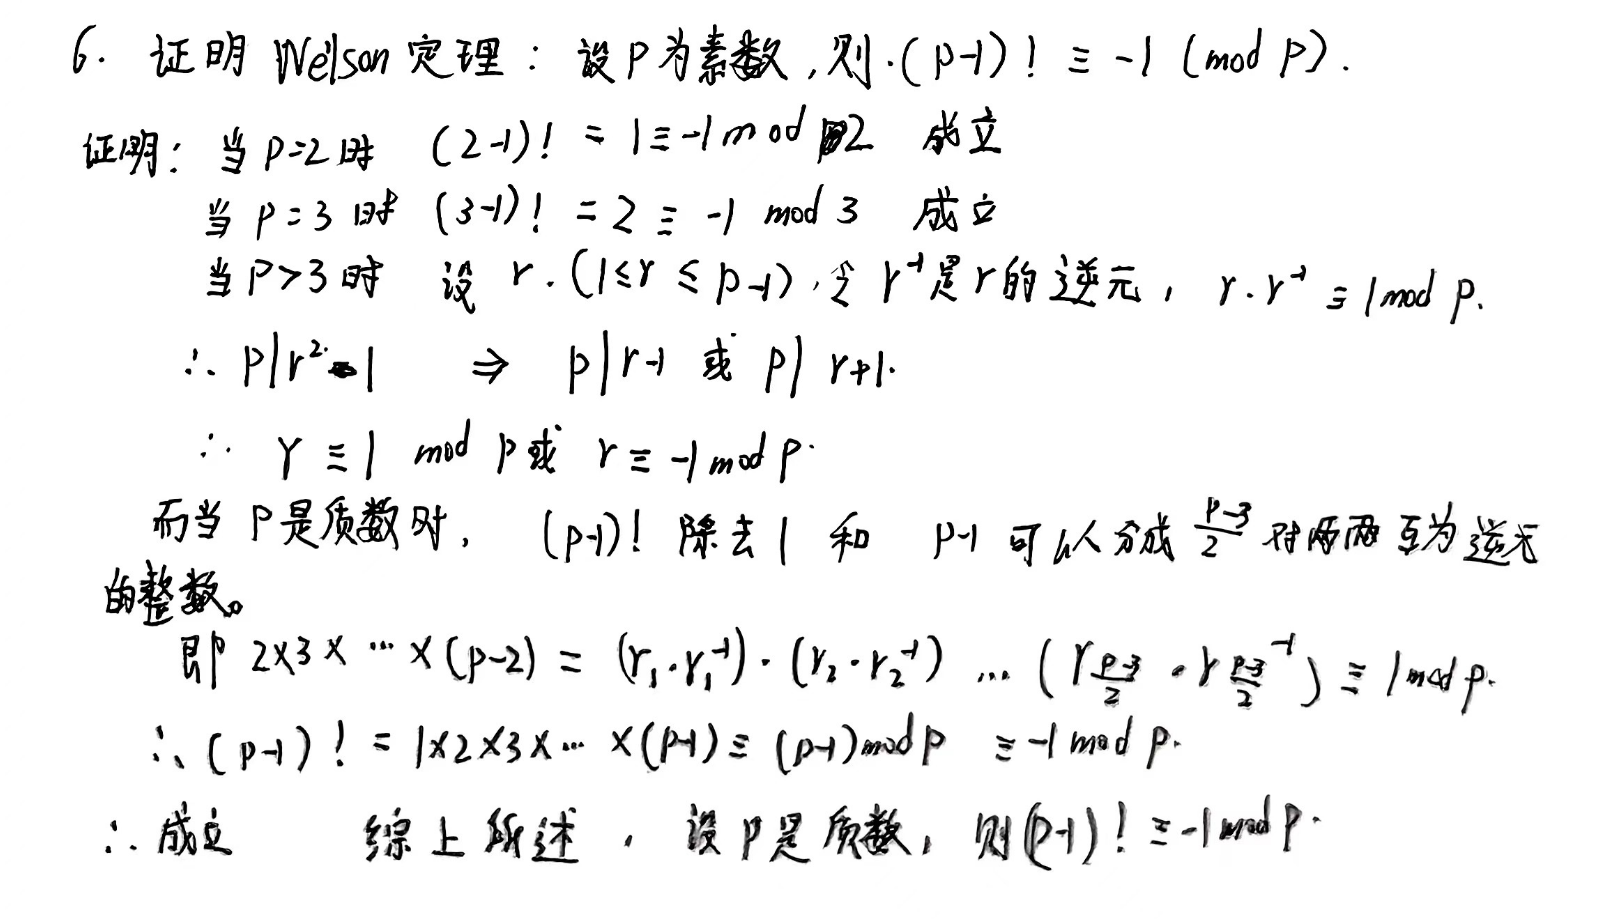 6. 证明 Welson 定理：设P为素数,则.(p-1)! ≡ -1 (mod p).
证明：当P=2时 (2-1)! = 1≡-1 mod 2 成立
当 p=3 时 (3-1)! = 2 ≡ -1 mod 3 成立
当P>3时 设 r.(1≤r≤p-1),令 r⁻¹是r的逆元, r·r⁻¹ ≡ 1 mod p.
∴ p|r²-1 ⇒ p|r-1 或 p| r+1.
∴ r ≡ 1 mod p或 r ≡ -1 mod p.
而当 P是质数时, (p-1)! 除去 1 和 p-1 可以分成 (p-3)/2 对两两互为逆元
的整数。
即 2×3×…×(p-2) = (r₁·r₁⁻¹)·(r₂·r₂⁻¹) … (r_{(p-3)/2} · r_{(p-3)/2}⁻¹) ≡ 1 mod p.
∴ (p-1)! = 1×2×3×…×(p-1) ≡ (p-1) mod p ≡ -1 mod p.
∴ 成立 综上所述, 设p是质数, 则(p-1)! ≡ -1 mod p.